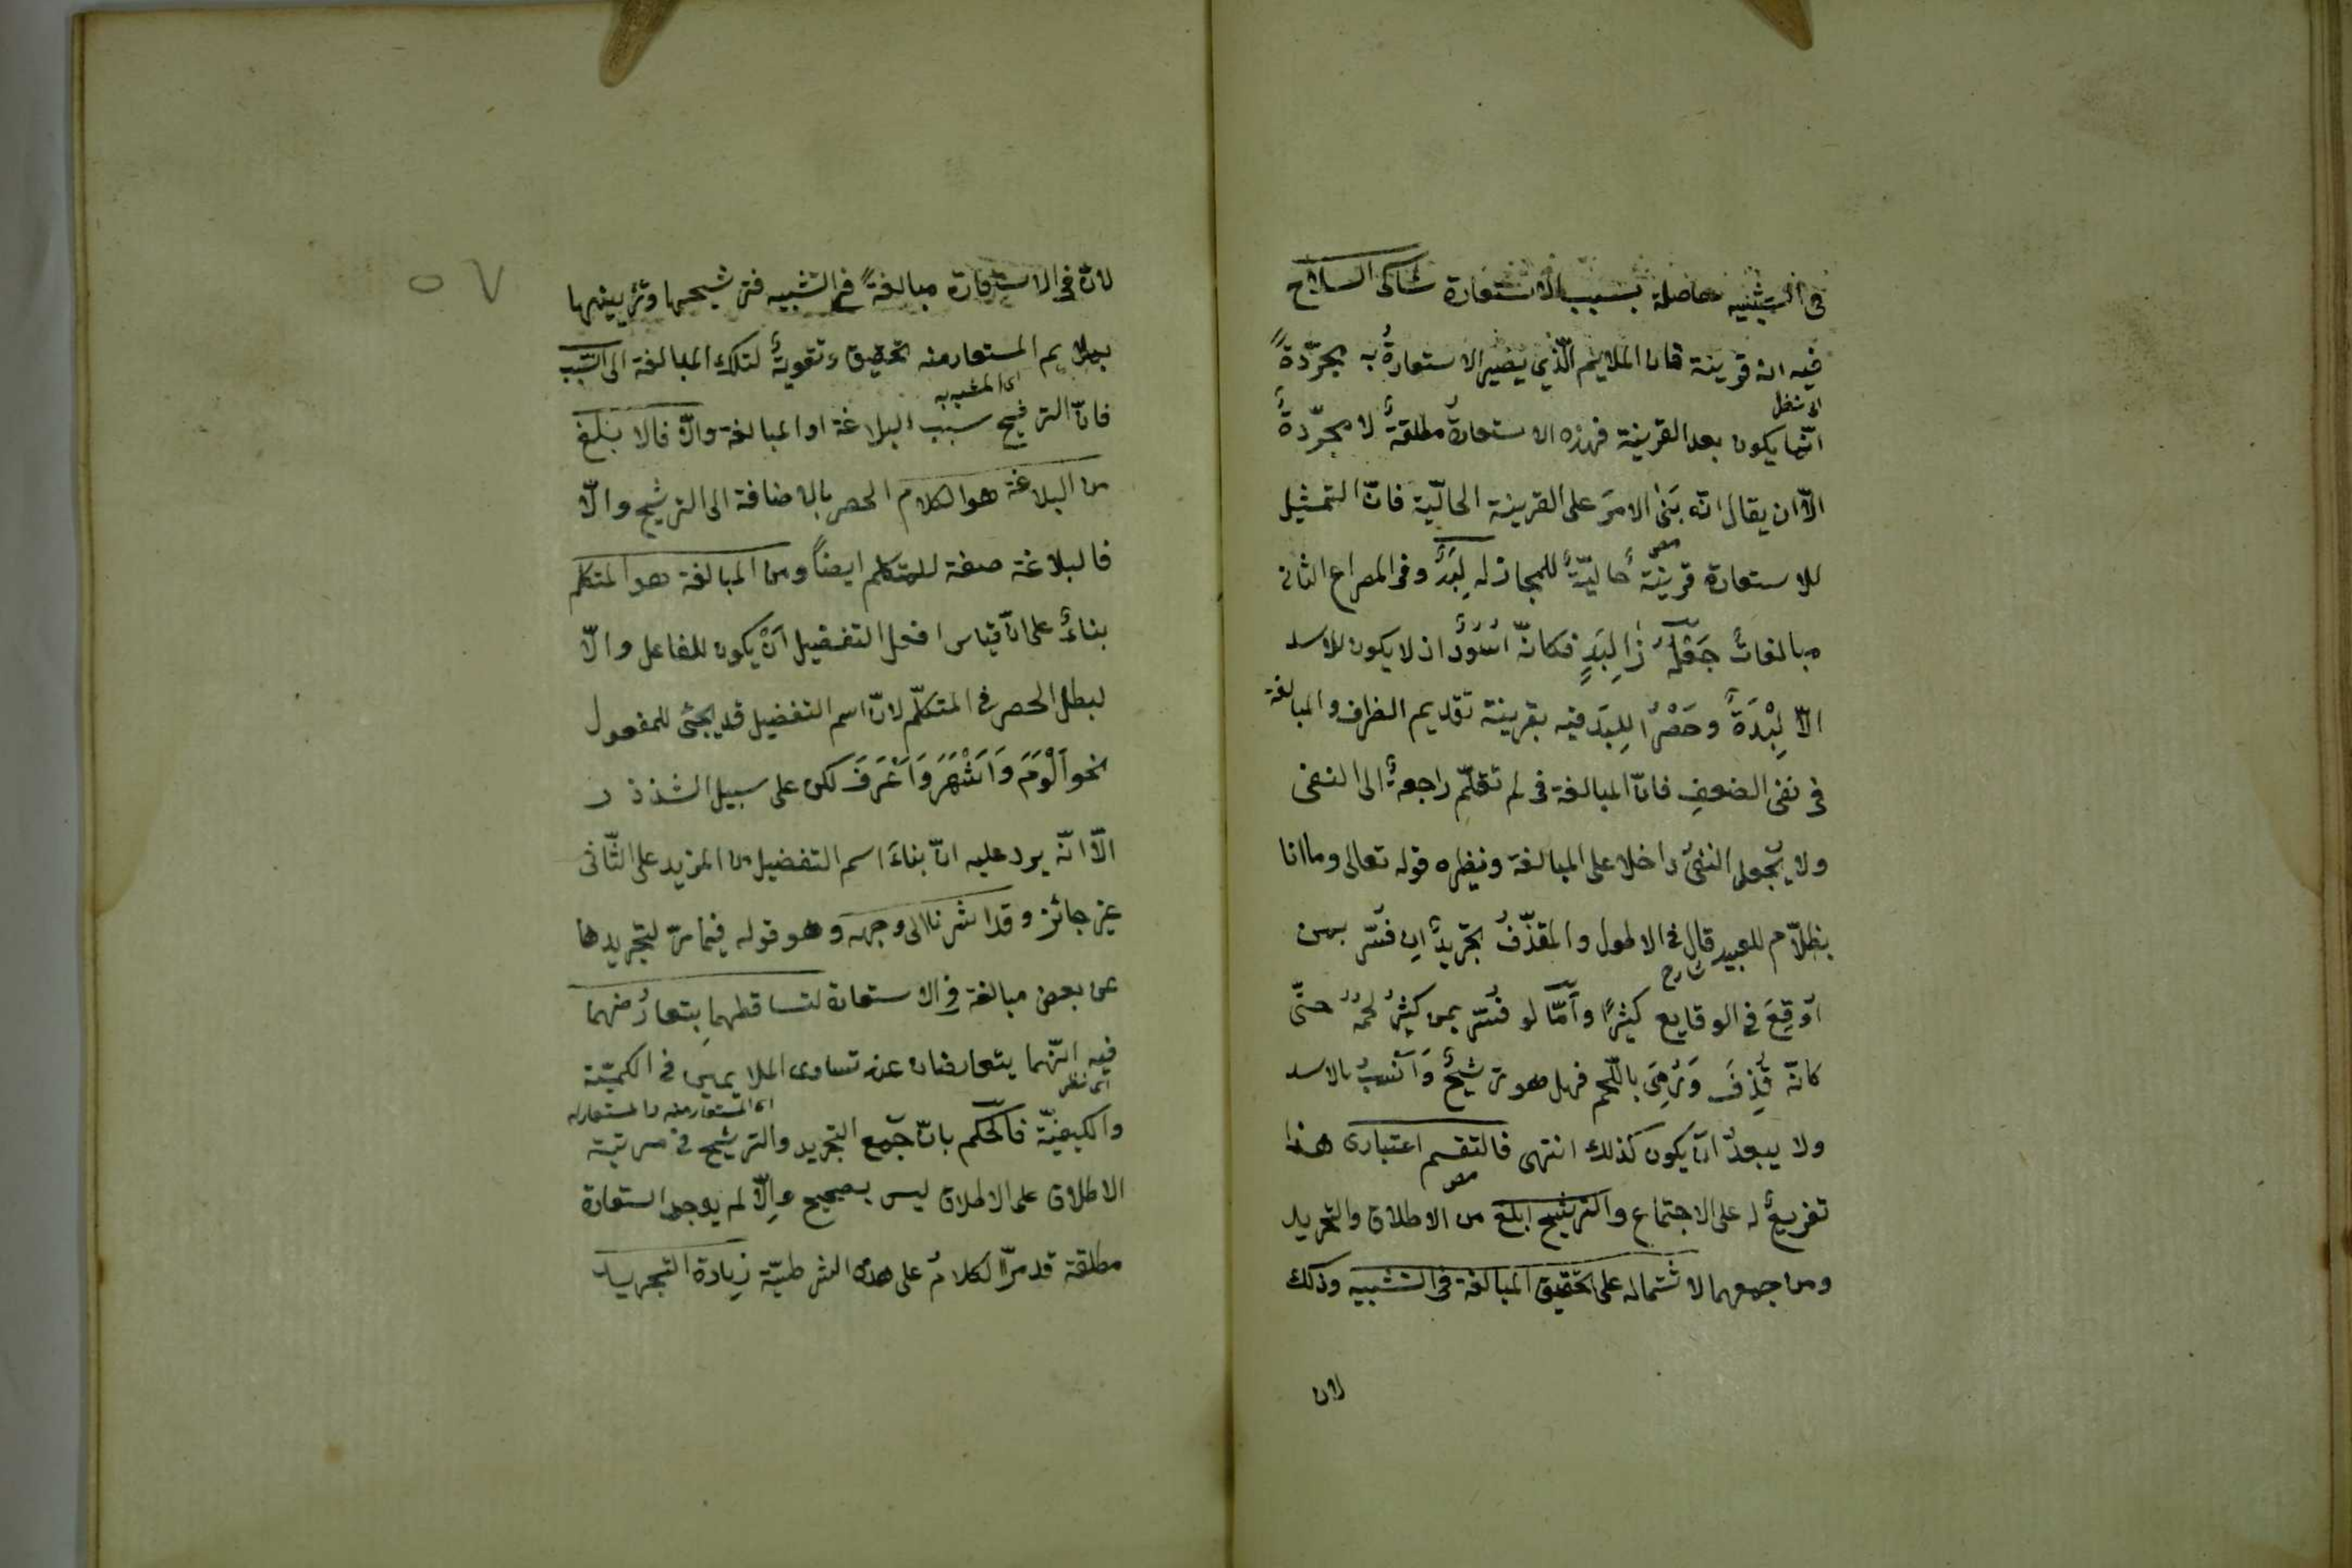 فى التشبيه حاصلة بسبب الاستعارة شاكى السلاح
فيه انه قرينة فان الملايم الّذي يصير الاستعارةُ به مجرّدةً
اى شغل
انّما يكون بعد القرينة فهذه الاستعارةُ مطلقةٌ لا مجرّدةٌ
الّا ان يقال انّه بَنىٰ الامرَ على القرينة الحاليّة فانّ التمثيل
للاستعارة قرينةٌ حاليّةٌ للمجاز له لِبَدٌ وفى المصراع الثانى
مص
مبالغاتٌ جَعْلُهُ ذا لِبَدٍ فكانّه اسُودٌ اذ لا يكون للاسد
الّا لِبْدَةٌ وحَصْرُ اللِبَد فيه بقرينة تقديم الظرف والمبالغة
فى نفى الضعفِ فانّ المبالغة فى لم تقلّم راجعةٌ الى النفى
ولا يُجعل النفىُ داخلا على المبالغة ونظيره قوله تعالى وما انا
بظلاّم للعبيد قال فى الاطول والمقذّفُ تجريدٌ ان فُسّر بمن
شارح
اُوقِعَ فى الوقايع كثيرًا وأمّا لو فُسّر بمن كثيرُ لحمُهُ حتّى
كانّه قُذِفَ وَرُمِىَ باللّحم فهل هو ترشيحٌ وَأنسبُ بالاسد
ولا يبعدُ ان يكون كذلك انتهى فالتقسم اعتبارى هذا
تفريعٌ له على الاجتماع والترشيح ابلغ من الاطلاق والتجريد
مص
ومن جمعهما لاشتماله على تحقيق المبالغة فى التشبيه وذلك
لان
٥٧
لانّ فى الاستعارة مبالغةً فى التشبيه فترشيحها وتزيينها
بملايم المستعار منه تحقيق وتقويةٌ لتلك المبالغة الى السّبب
اى المشبه به
فانّ الترشيح سبب البلاغة او المبالغة والّا فالابلغ
من البلاغة هو الكلام الحصر بالاضافة الى الترشيح والّا
فالبلاغة صفة للمتكلم ايضًا ومن المبالغة هو المتكلم
بناءً على انّ قياس افعل التفضيل اَنْ يكون للفاعل والّا
لبطل الحصر فى المتكلّم لانّ اسم التفضيل قد يجئ للمفعول
نحو اَلْوَمَ وَاَشْهَرَ وَاَعْرَفَ لكن على سبيل الشذذ
الّا انّه يرد عليه انّ بناءَ اسم التفضيل من المزيد على الثّاثى
غير جائز وقد اشرنا الى وجهه وهو قوله فيما مرّ لتجريدها
عن بعض مبالغة فى الاستعارة لتساقطهما بتعارُضهما
فيه انّهما يتعارضان عند تساوى الملايمين فى الكميّة
اى نظر
اى المستعار منه والمستعار له
والكيفيّة فالحكم بانّ جمع التجريد والترشيح فى مرتبة
الاطلاق على الاطلاق ليس بصحيح والّا لم يوجد استعارة
مطلقة قد مرّ الكلامُ على هذه الشرطيّة زيادة التجريد